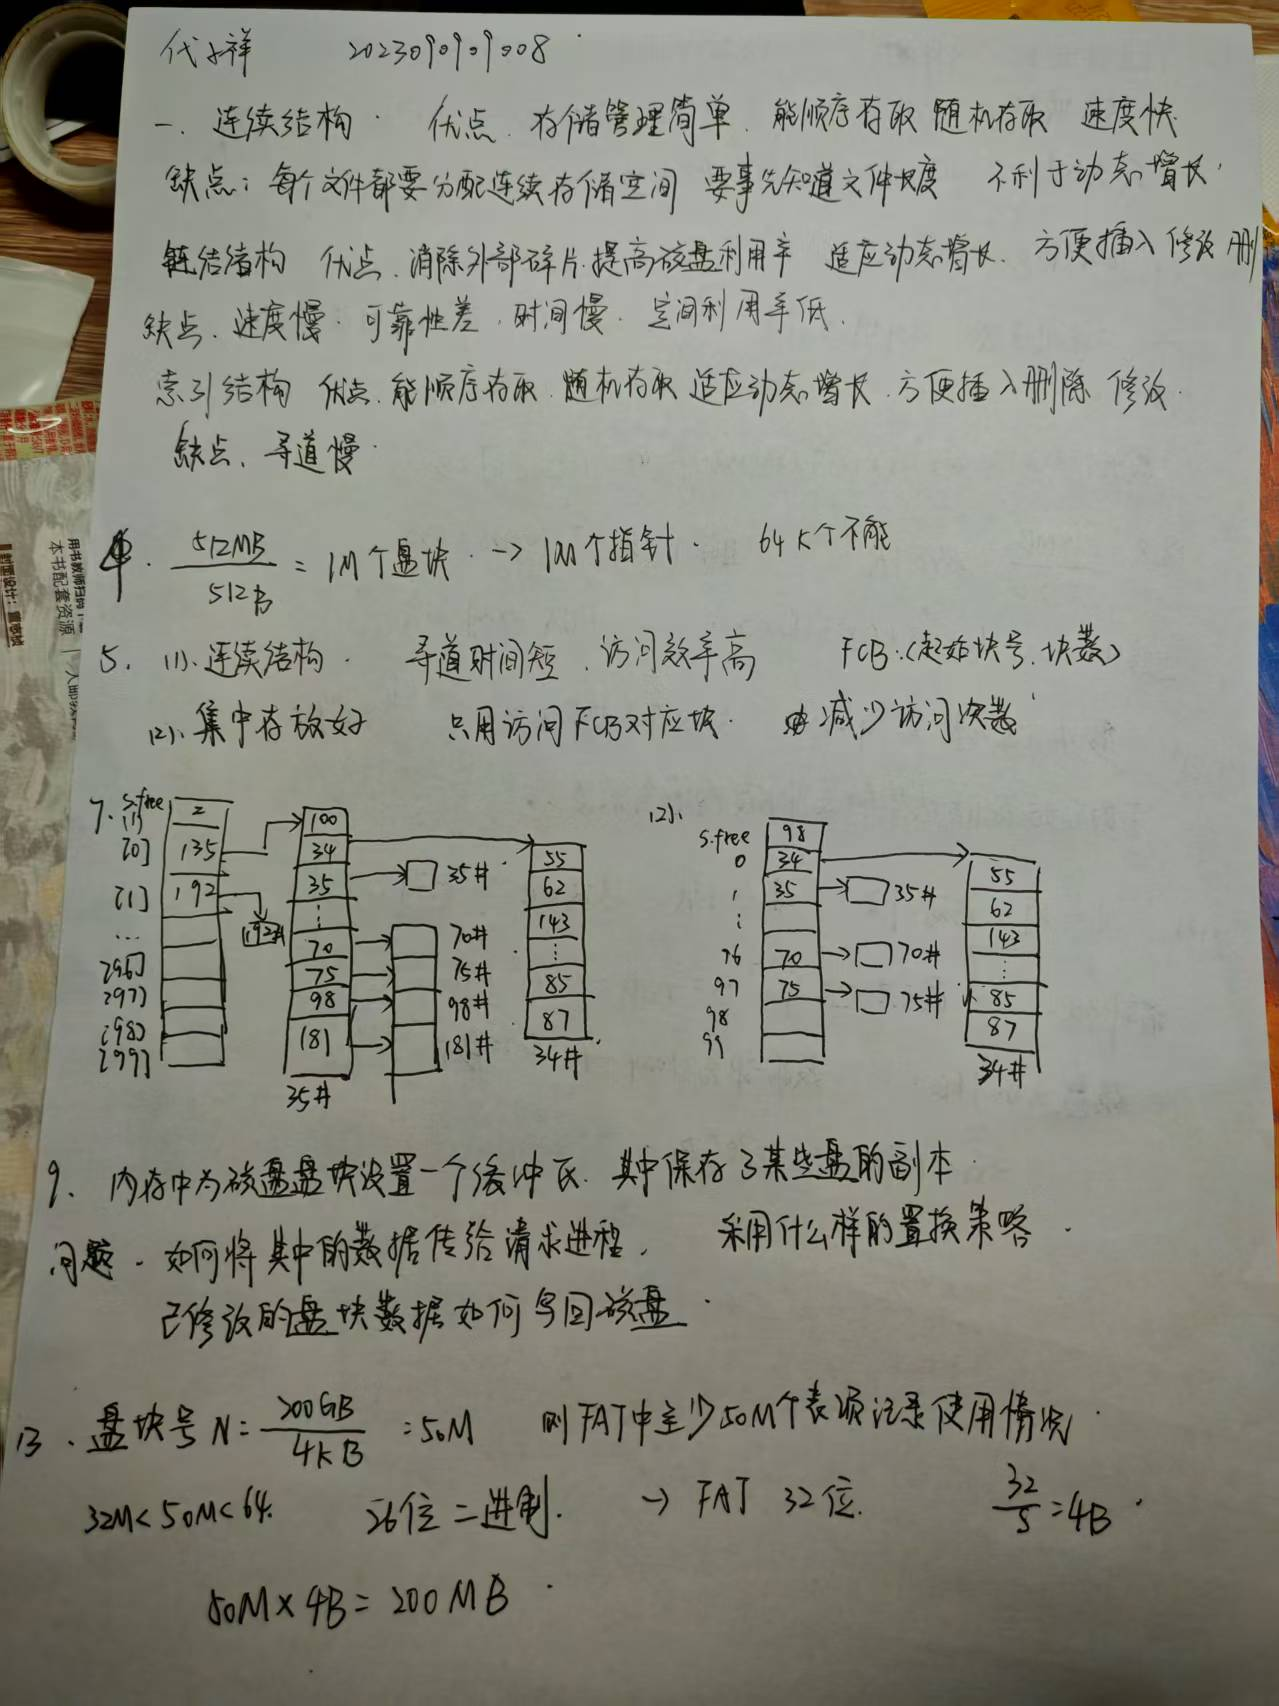 代 祥 2023090909008
一、连续结构 优点、存储管理简单、能顺序存取 随机存取 速度快
缺点：每个文件都要分配连续存储空间 要事先知道文件长度 不利于动态增长
链结结构 优点、消除外部碎片、提高磁盘利用率 适应动态增长、方便插入 修改 删
缺点、速度慢、可靠性差、时间慢、空间利用率低、
索引结构 优点、能顺序存取、随机存取 适应动态增长、方便插入删除 修改
缺点、寻道慢
4. 512MB / 512B = 1M个盘块 → 1M个指针 64K个不能
5. (1)、连续结构 寻道时间短、访问效率高 FCB:(起始块号、块数)
(2)、集中存放好 只用访问FCB对应块 减少访问次数
7. (1) S.free 2 100
[0] 135 34 55
[1] 192 192# 35 35# 62
... ⋮ 143
[96] 70 70# ⋮
[97] 75 75# 85
[98] 98 98# 87
[99] 181 181# 34#
35#
(2)、 S.free 98
0 34 55
1 35 35# 62
⋮ 143
76 70 70# ⋮
97 75 75# 85
98 87
99 34#
9. 内存中为磁盘盘块设置一个缓冲区、其中保存了某些盘的副本
问题、如何将其中的数据传给请求进程、 采用什么样的置换策略
已修改的盘块数据如何写回磁盘
13、盘块号 N = 200GB / 4KB = 50M 则FAT中至少50M个表项记录使用情况
32M<50M<64 26位二进制. → FAT 32位. 32 / 5 = 4B
50M×4B=200MB